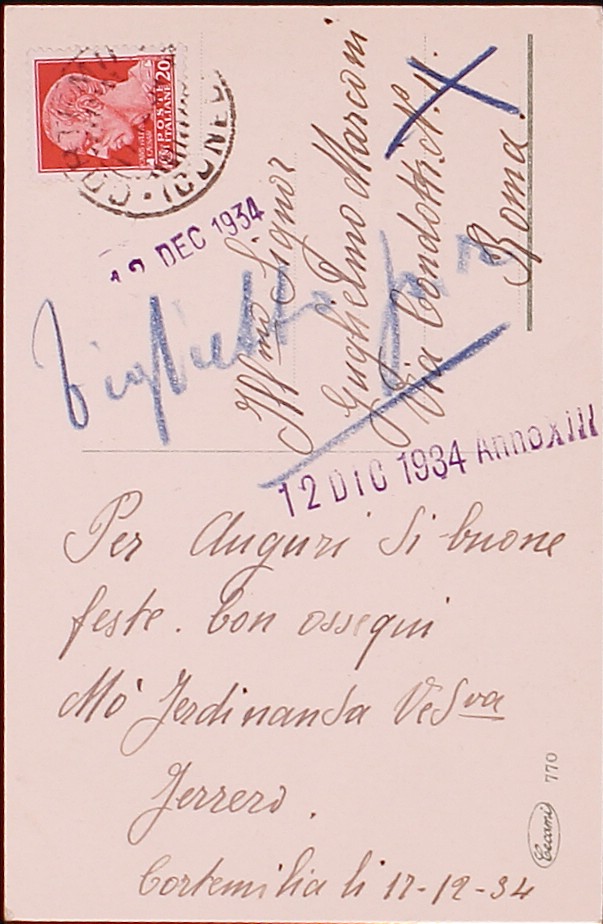 POSTE
ITALIANE
20
12 DEC 1934
Ill mo Signor
Guglielmo Marconi
Via Condotti. N° 11.
Roma.
Biglietto
12 DIC 1934 Anno XIII
Per Auguri di buone
feste. Con ossequi
Mo' Ferdinanda Ved va
Ferrero.
Cortemilia li 17-12-34
Cecami
770